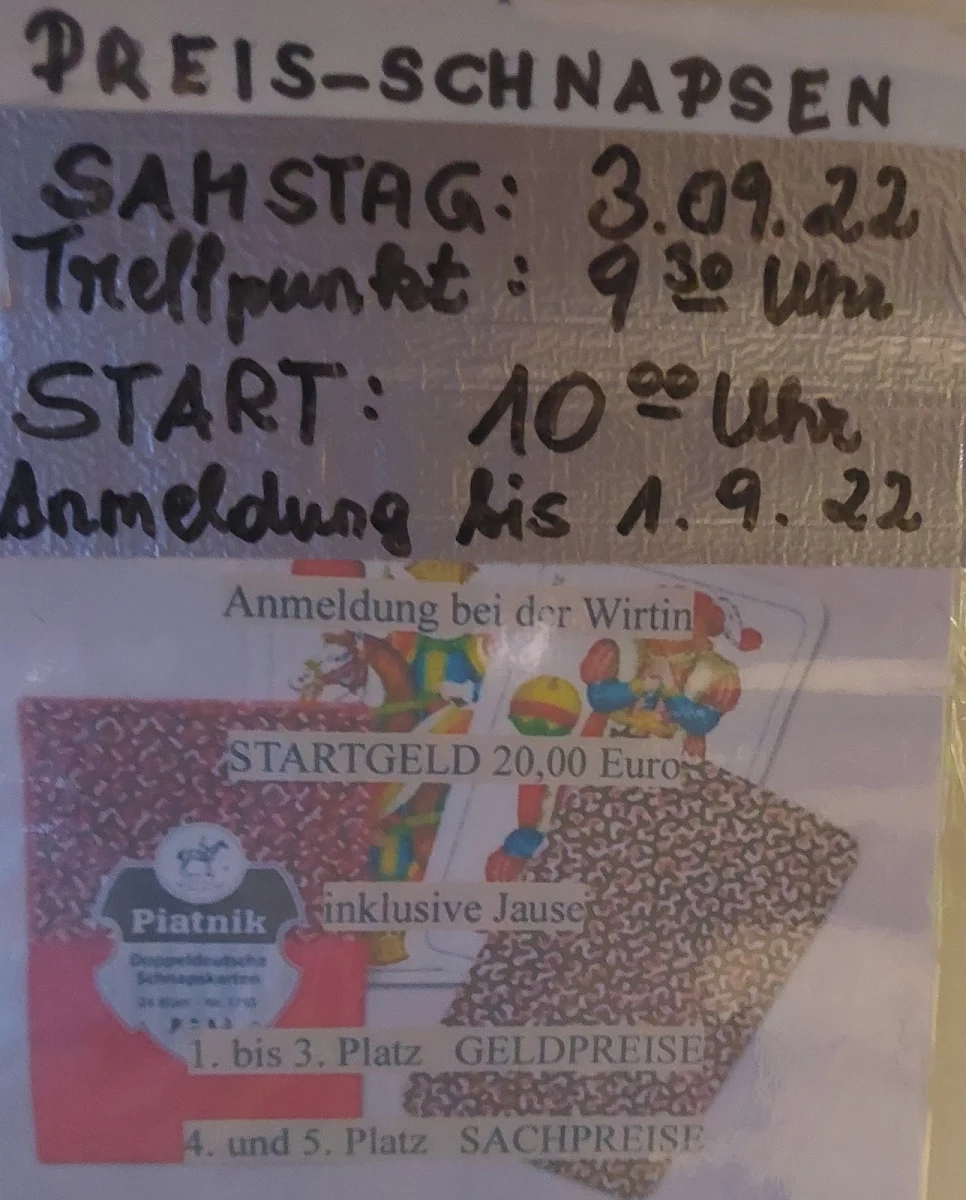 PREIS-SCHNAPSEN
SAMSTAG: 3.09.22
Treffpunkt: 9 30 Uhr
START: 10 00 Uhr
Anmeldung bis 1.9.22
Anmeldung bei der Wirtin
STARTGELD 20,00 Euro
inklusive Jause
Piatnik
Doppeldeutsche
Schnapskarten
1. bis 3. Platz GELDPREISE
4. und 5. Platz SACHPREISE